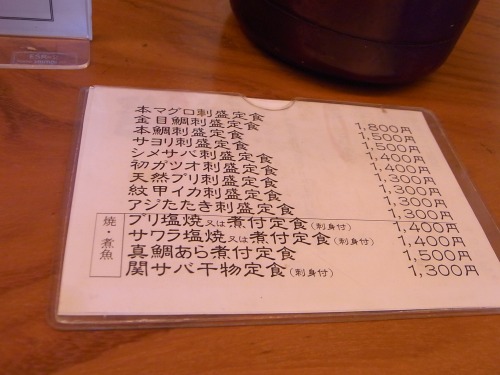 本マグロ刺盛定食 1,800円
金目鯛刺盛定食 1,500円
本鯛刺盛定食 1,500円
サヨリ刺盛定食 1,400円
シメサバ刺盛定食 1,400円
初ガツオ刺盛定食 1,300円
天然ブリ刺盛定食 1,300円
紋甲イカ刺盛定食 1,300円
アジたたき刺盛定食 1,300円
焼・煮魚
ブリ塩焼又は煮付定食(刺身付) 1,400円
サワラ塩焼又は煮付定食(刺身付) 1,400円
真鯛あら煮付定食 1,500円
関サバ干物定食(刺身付) 1,300円